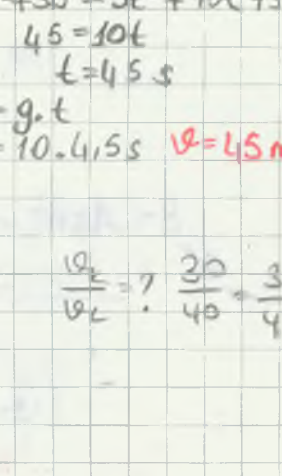 45 = 10t
t = 45 s
= g.t
= 10.4,5s ϑ = 45 m
ϑ_K/ϑ_L = ? 30/40 = 3/4